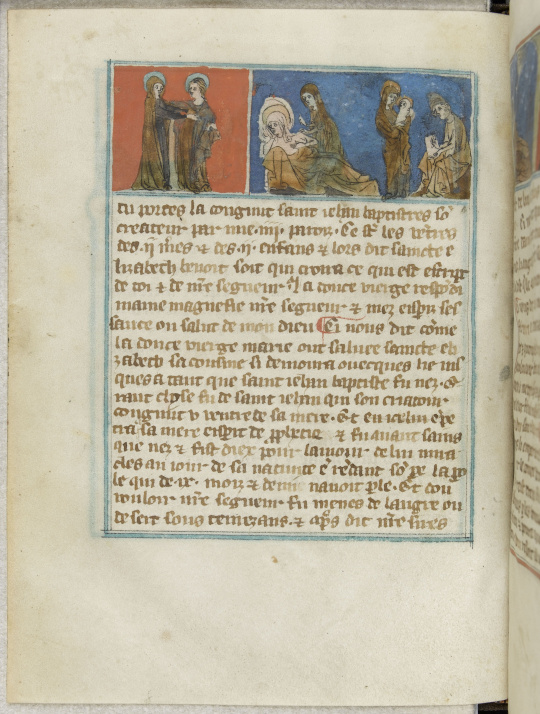 tu portes la congnut saint iehan baptistres so
createur par mie .iiij. paroiz. Ce st les ventres
des .ij. meres et des .ij. enfans et lors dit saincte e
lizabech benoit soit qui croira ce qui est escript
de toi et de nre segneur. La douce vierge respodi
maine magnefie nre segneur et mez espir ses
iauce ou salut de mon dieu Ci nous dit come
la douce vierge marie out saluee saincte eli
zabech sa cousine si demoura ouecques lie ius
ques a tant que saint iehan baptiste fu nez. et
vaut chose fu de saint iehan qui son criatour
congnut v ventre de sa mere. Et en icelui
sa mere espit de pphetie et fu auant sains
que nez et fist diex pour lamour de lui mira
cles au iour de sa natiuite rendant so
le qui de .ix. moiz et demi nauoit ple. Et dou
vouloir nre segneur fu menes de langre ou
desert sous et aps dit nre sires